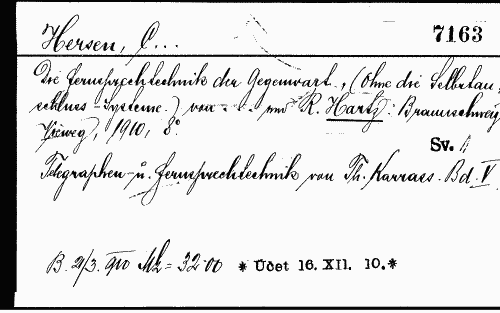 Hersen, C...
7163
Die Fernsprechtechnik der Gegenwart, (Ohne die Selbstan-
schluss-Systeme.) von . . . und R. Hartz: Braunschweig,
Vieweg, 1910, 8°.
Sv.
Telegraphen- u. Fernsprechtechnik von Th. Karrass. Bd. V.
B. 21/3. 910 Mk = 32.00 * Účet 16. XII. 10.*